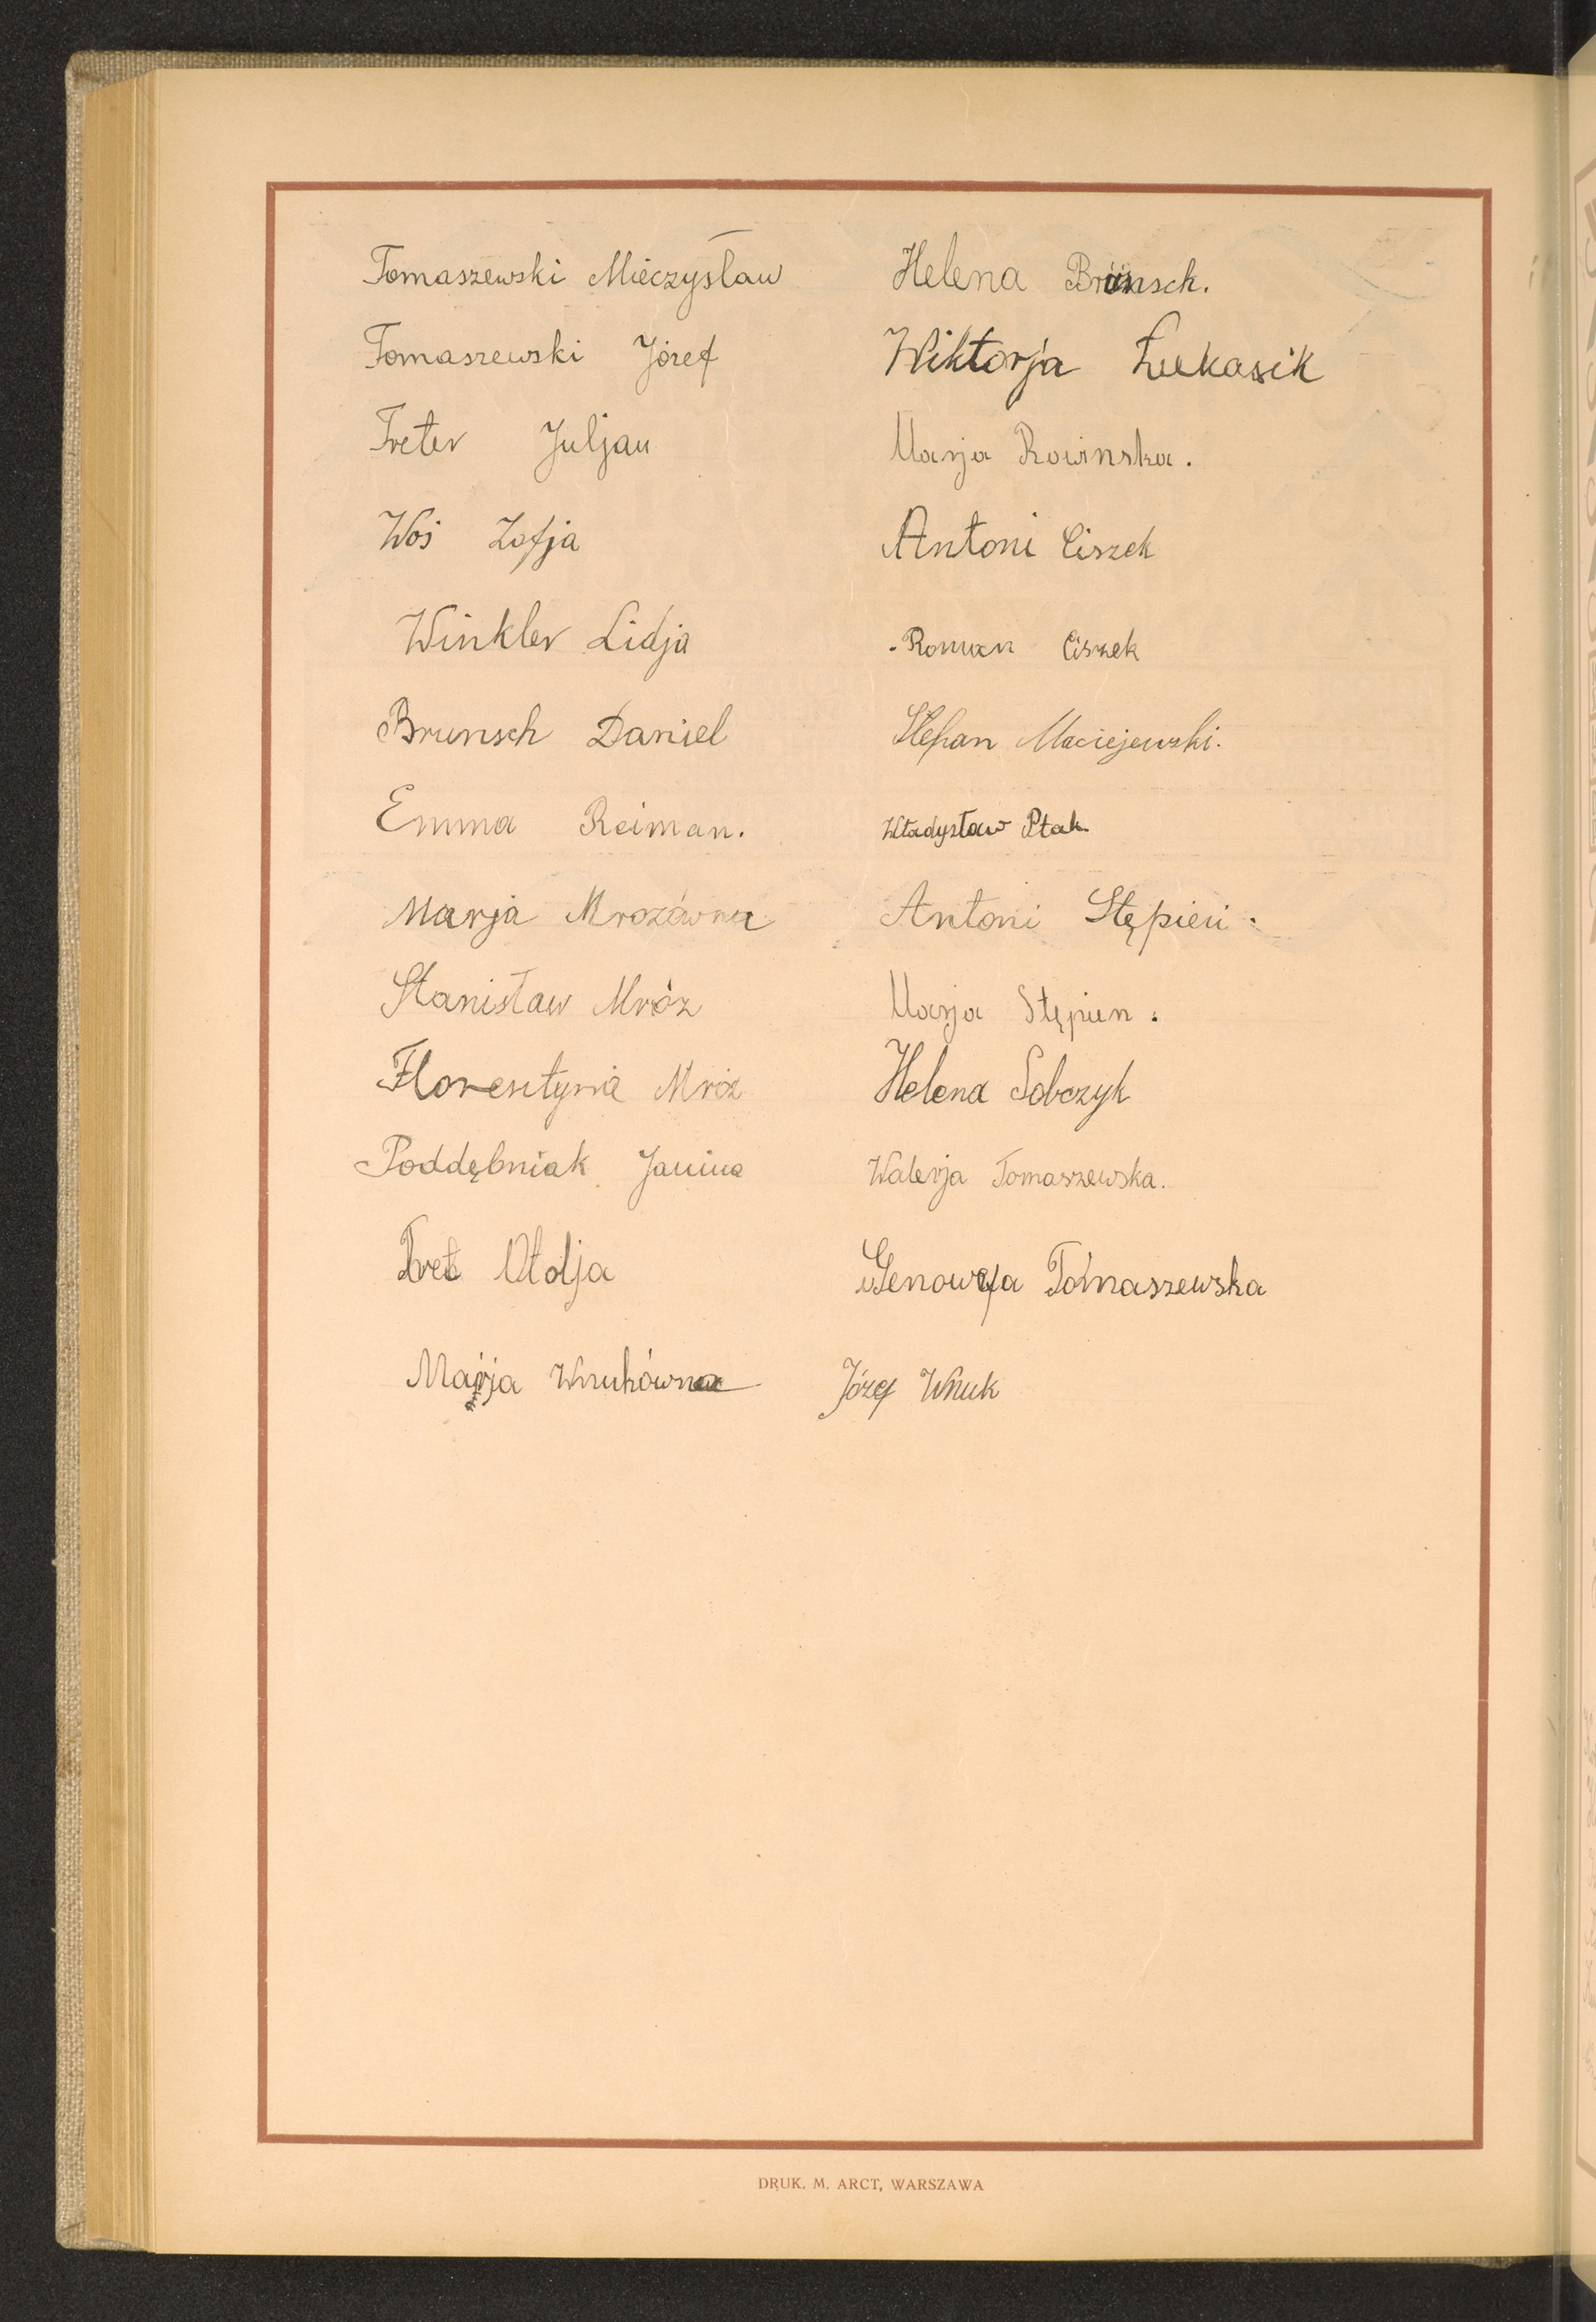 Tomaszewski Mieczysław
Tomaszewski Józef
Treter Juljan
Woś Zofja
Winkler Lidja
Brunsch Daniel
Emma Reiman.
Marja Mrozówna
Stanisław Mróz
Florentyna Mróz
Poddębniak Janina
Otolja
Marja Wnukówna
Helena Brünsch.
Wiktorja Łukasik
Marja Rowinska.
Antoni Ciszek
Roman Ciszek
Stefan Maciejewski.
Władysław Ptak
Antoni Stępień.
Marja Stępien.
Helena Sobczyk
Walerja Tomaszewska.
Genowefa Tomaszewska
Józef Wnuk
DRUK. M. ARCT, WARSZAWA